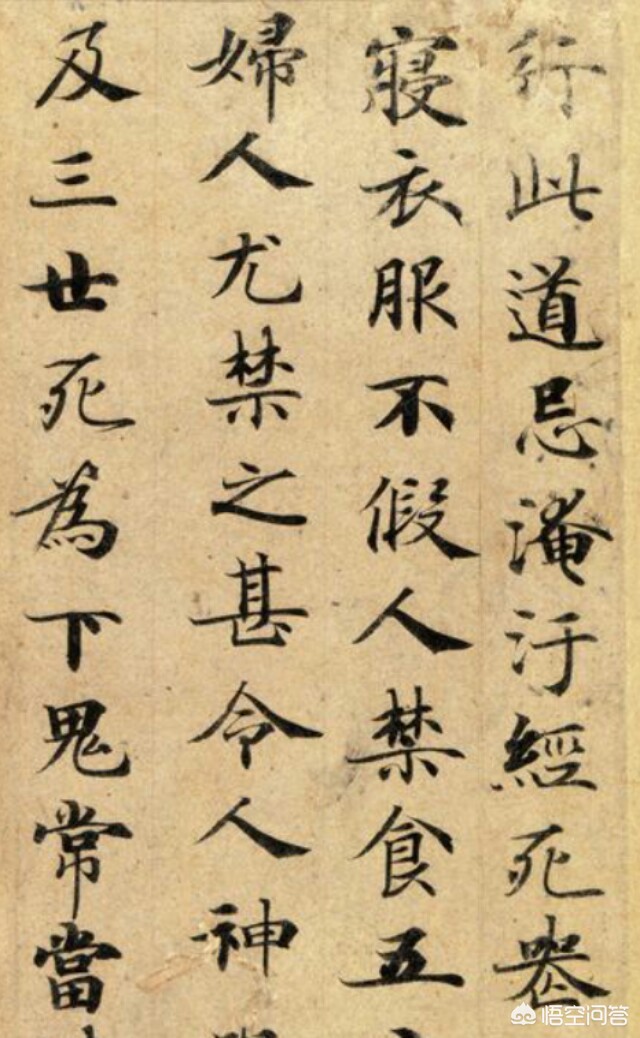 行此道忌淹汙經死喪
寢衣服不假人禁食五
婦人尤禁之甚令人神
及三世死為下鬼常當
悟空问答